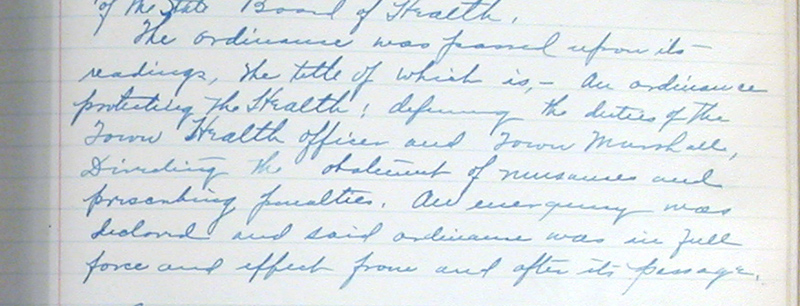 of the State Board of Health.
The ordinance was passed upon its
readings, the title of which is,- An ordinance
protecting the Health; defining the duties of the
Town Health officer and Town Marshall,
Directing the abatement of nusances and
prescribing penalties. An emergency was
declared and said ordinance was in full
force and effect from and after its passage.